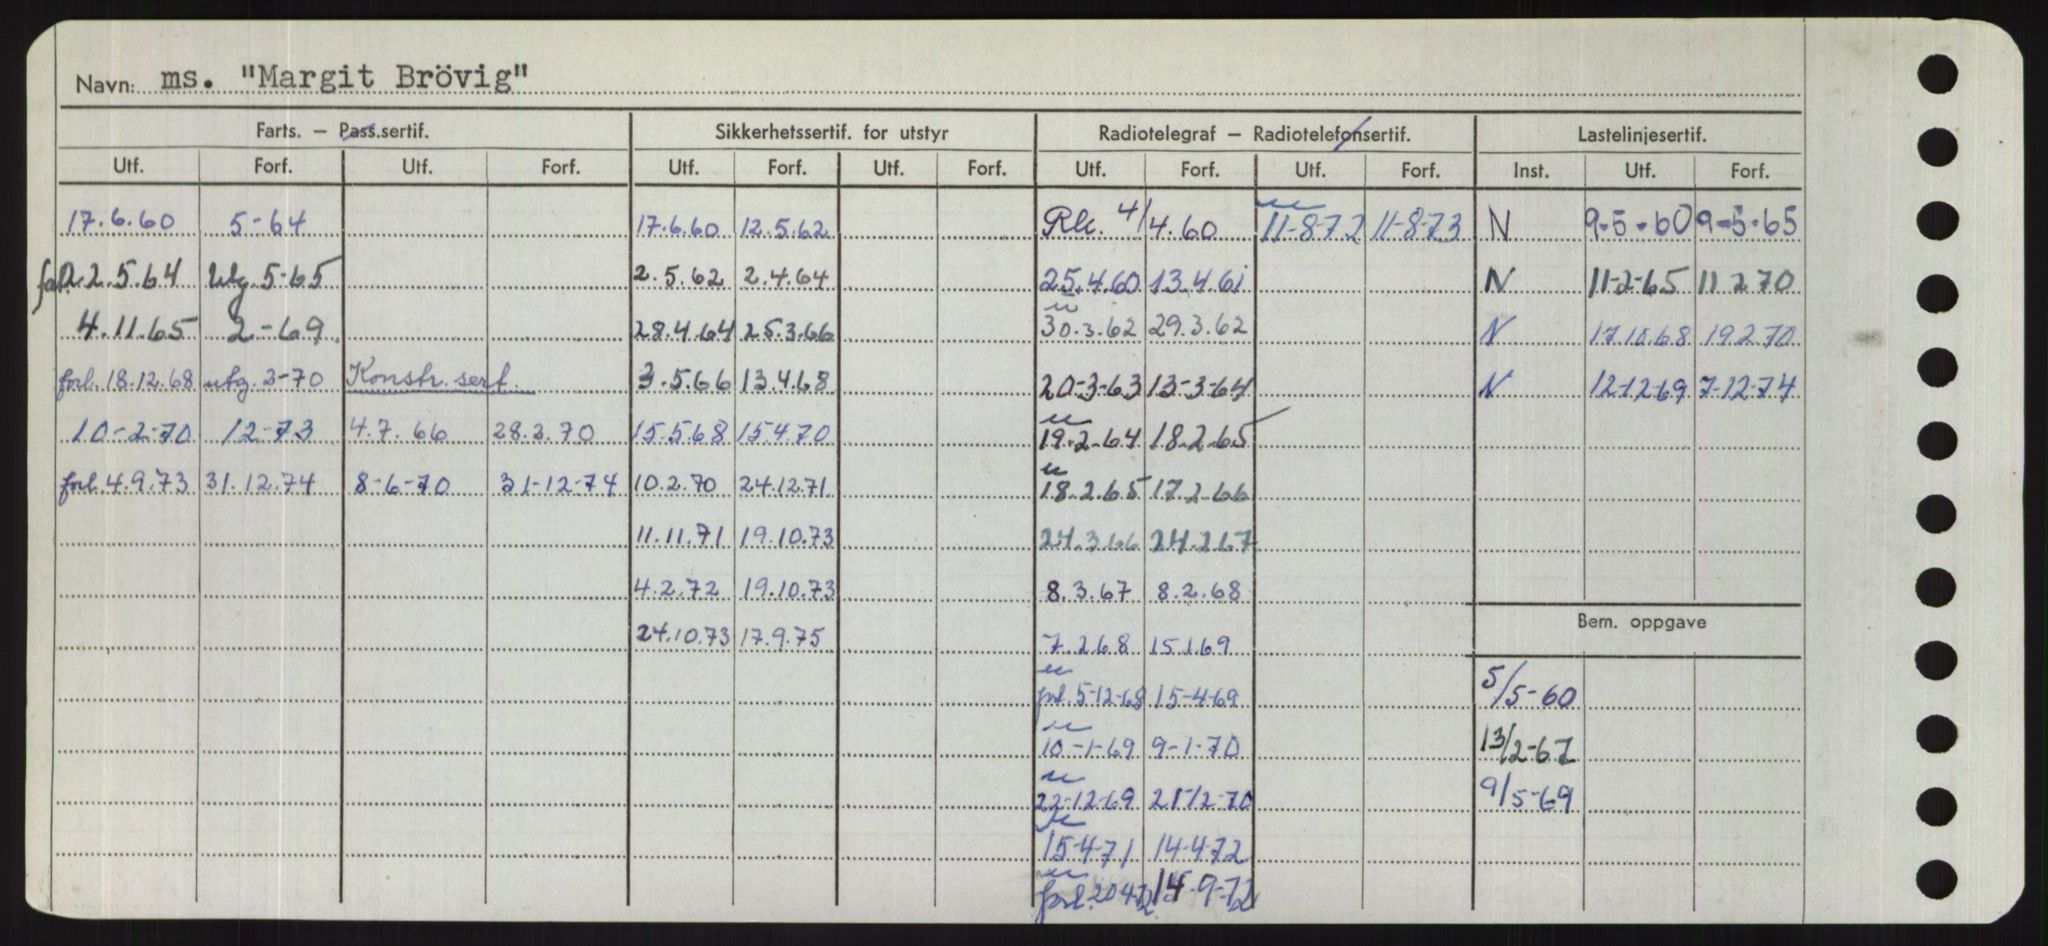 Navn: ms. "Margit Brövig"
Farts. – Pass.sertif. Sikkerhetssertif. for utstyr Radiotelegraf – Radiotelefonsertif. Lastelinjesertif.
Utf. Forf. Utf. Forf. Utf. Forf. Utf. Forf. Utf. Forf. Utf. Forf. Inst. Utf. Forf.
17.6.60 5-64 17.6.60 12.5.62 Rk. 4/4.60 11-8-72 11-8-73 N 9-5-60 9-5-65
forl. 2.5.64 utg 5-65 2.5.62 2.4.64 25.4.60 13.4.61 N 11-2-65 11.2.70
4.11.65 2-69 28.4.64 25.3.66 30.3.62 29.3.62 N 17.10.68 19.2.70
forl. 18.12.68 utg. 2-70 Konstr. sert. 3.5.66 13.4.68 20-3-63 13-3-64 N 12-12-69 7-12-74
10-2-70 12-73 4.7.66 28.2.70 15.5.68 15.4.70 19.2.64 18.2.65
forl. 4.9.73 31.12.74 8-6-70 31-12-74 10.2.70 24.12.71 18.2.65 17.2.66
11.11.71 19.10.73 24.3.66 24.2.67
4.2.72 19.10.73 8.3.67 8.2.68
Bem. oppgave
24.10.73 17.9.75 7.2.68 15.1.69
forl. 5-12-68 15-4-69 5/5-60
10-1-69 9-1-70 13/2-67
22-12-69 21-12-70 9/5-69
15-4-71 14-4-72
forl. 20.4.72 14-9-72